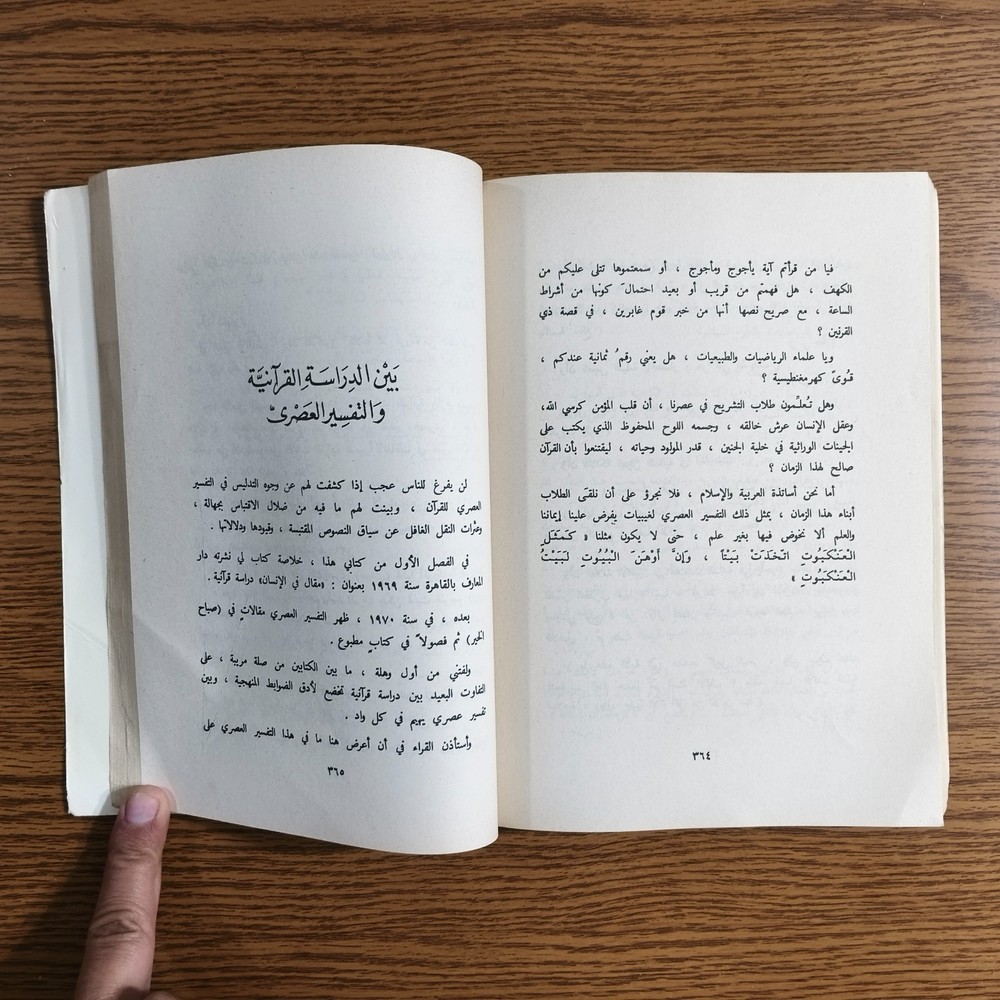 فيا من قرأتم آية يأجوج ومأجوج ، أو سمعتموها تتلى عليكم من
الكهف ، هل فهمتم من قريب أو بعيد احتمالَ كونها من أشراط
الساعة ، مع صريح نصها أنها من خبر قوم غابرين ، في قصة ذي
القرنين ؟
ويا علماء الرياضيات والطبيعيات ، هل يعني رقمُ ثمانية عندكم ،
قوىً كهرمغنطيسية ؟
وهل تُعلِّمون طلاب التشريح في عصرنا ، أن قلب المؤمن كرسي الله،
وعقل الإنسان عرش خالقه ، وجسمه اللوح المحفوظ الذي يكتب على
الجينات الوراثية في خلية الجنين ، قدر المولود وحياته ، ليقتنعوا بأن القرآن
صالح لهذا الزمان ؟
أما نحن أساتذة العربية والإسلام ، فلا نجرؤ على أن نلقى الطلاب
أبناء هذا الزمان ، بمثل ذلك التفسير العصري لغيبيات يفرض علينا إيماننا
والعلم ألا نخوض فيها بغير علم ، حتى لا يكون مثلنا « كَمَثَلِ
الْعَنْكَبُوتِ اتَّخَذَتْ بَيْتاً ، وَإِنَّ أَوْهَنَ الْبُيُوتِ لَبَيْتُ
الْعَنْكَبُوتِ »
٣٦٤
بَيْن الدِرَاسَةِ القرآنيَّة
وَالتفسِير العَصْرىّ
لن يفرغ للناس عجب إذا كشفت لهم عن وجوه التدليس في التفسير
العصري للقرآن ، وبينت لهم ما فيه من ضلال الاقتباس بجهالة ،
وعثرات النقل الغافل عن سياق النصوص المقتبسة ، وقيودها ودلالاتها .
في الفصل الأول من كتابي هذا ، خلاصة كتاب لي نشرته دار
المعارف بالقاهرة سنة ١٩٦٩ بعنوان : «مقال في الإنسان» دراسة قرآنية .
بعده ، في سنة ١٩٧٠ ، ظهر التفسير العصري مقالاتٍ في (صباح
الخير) ثم فصولاً في كتابٍ مطبوع .
ولفتني من أول وهلة ، ما بين الكتابين من صلة مريبة ، على
التفاوت البعيد بين دراسة قرآنية تخضع لأدق الضوابط المنهجية ، وبين
تفسير عصري يهيم في كل واد .
وأستأذن القراء في أن أعرض هنا ما في هذا التفسير العصري على
٣٦٥